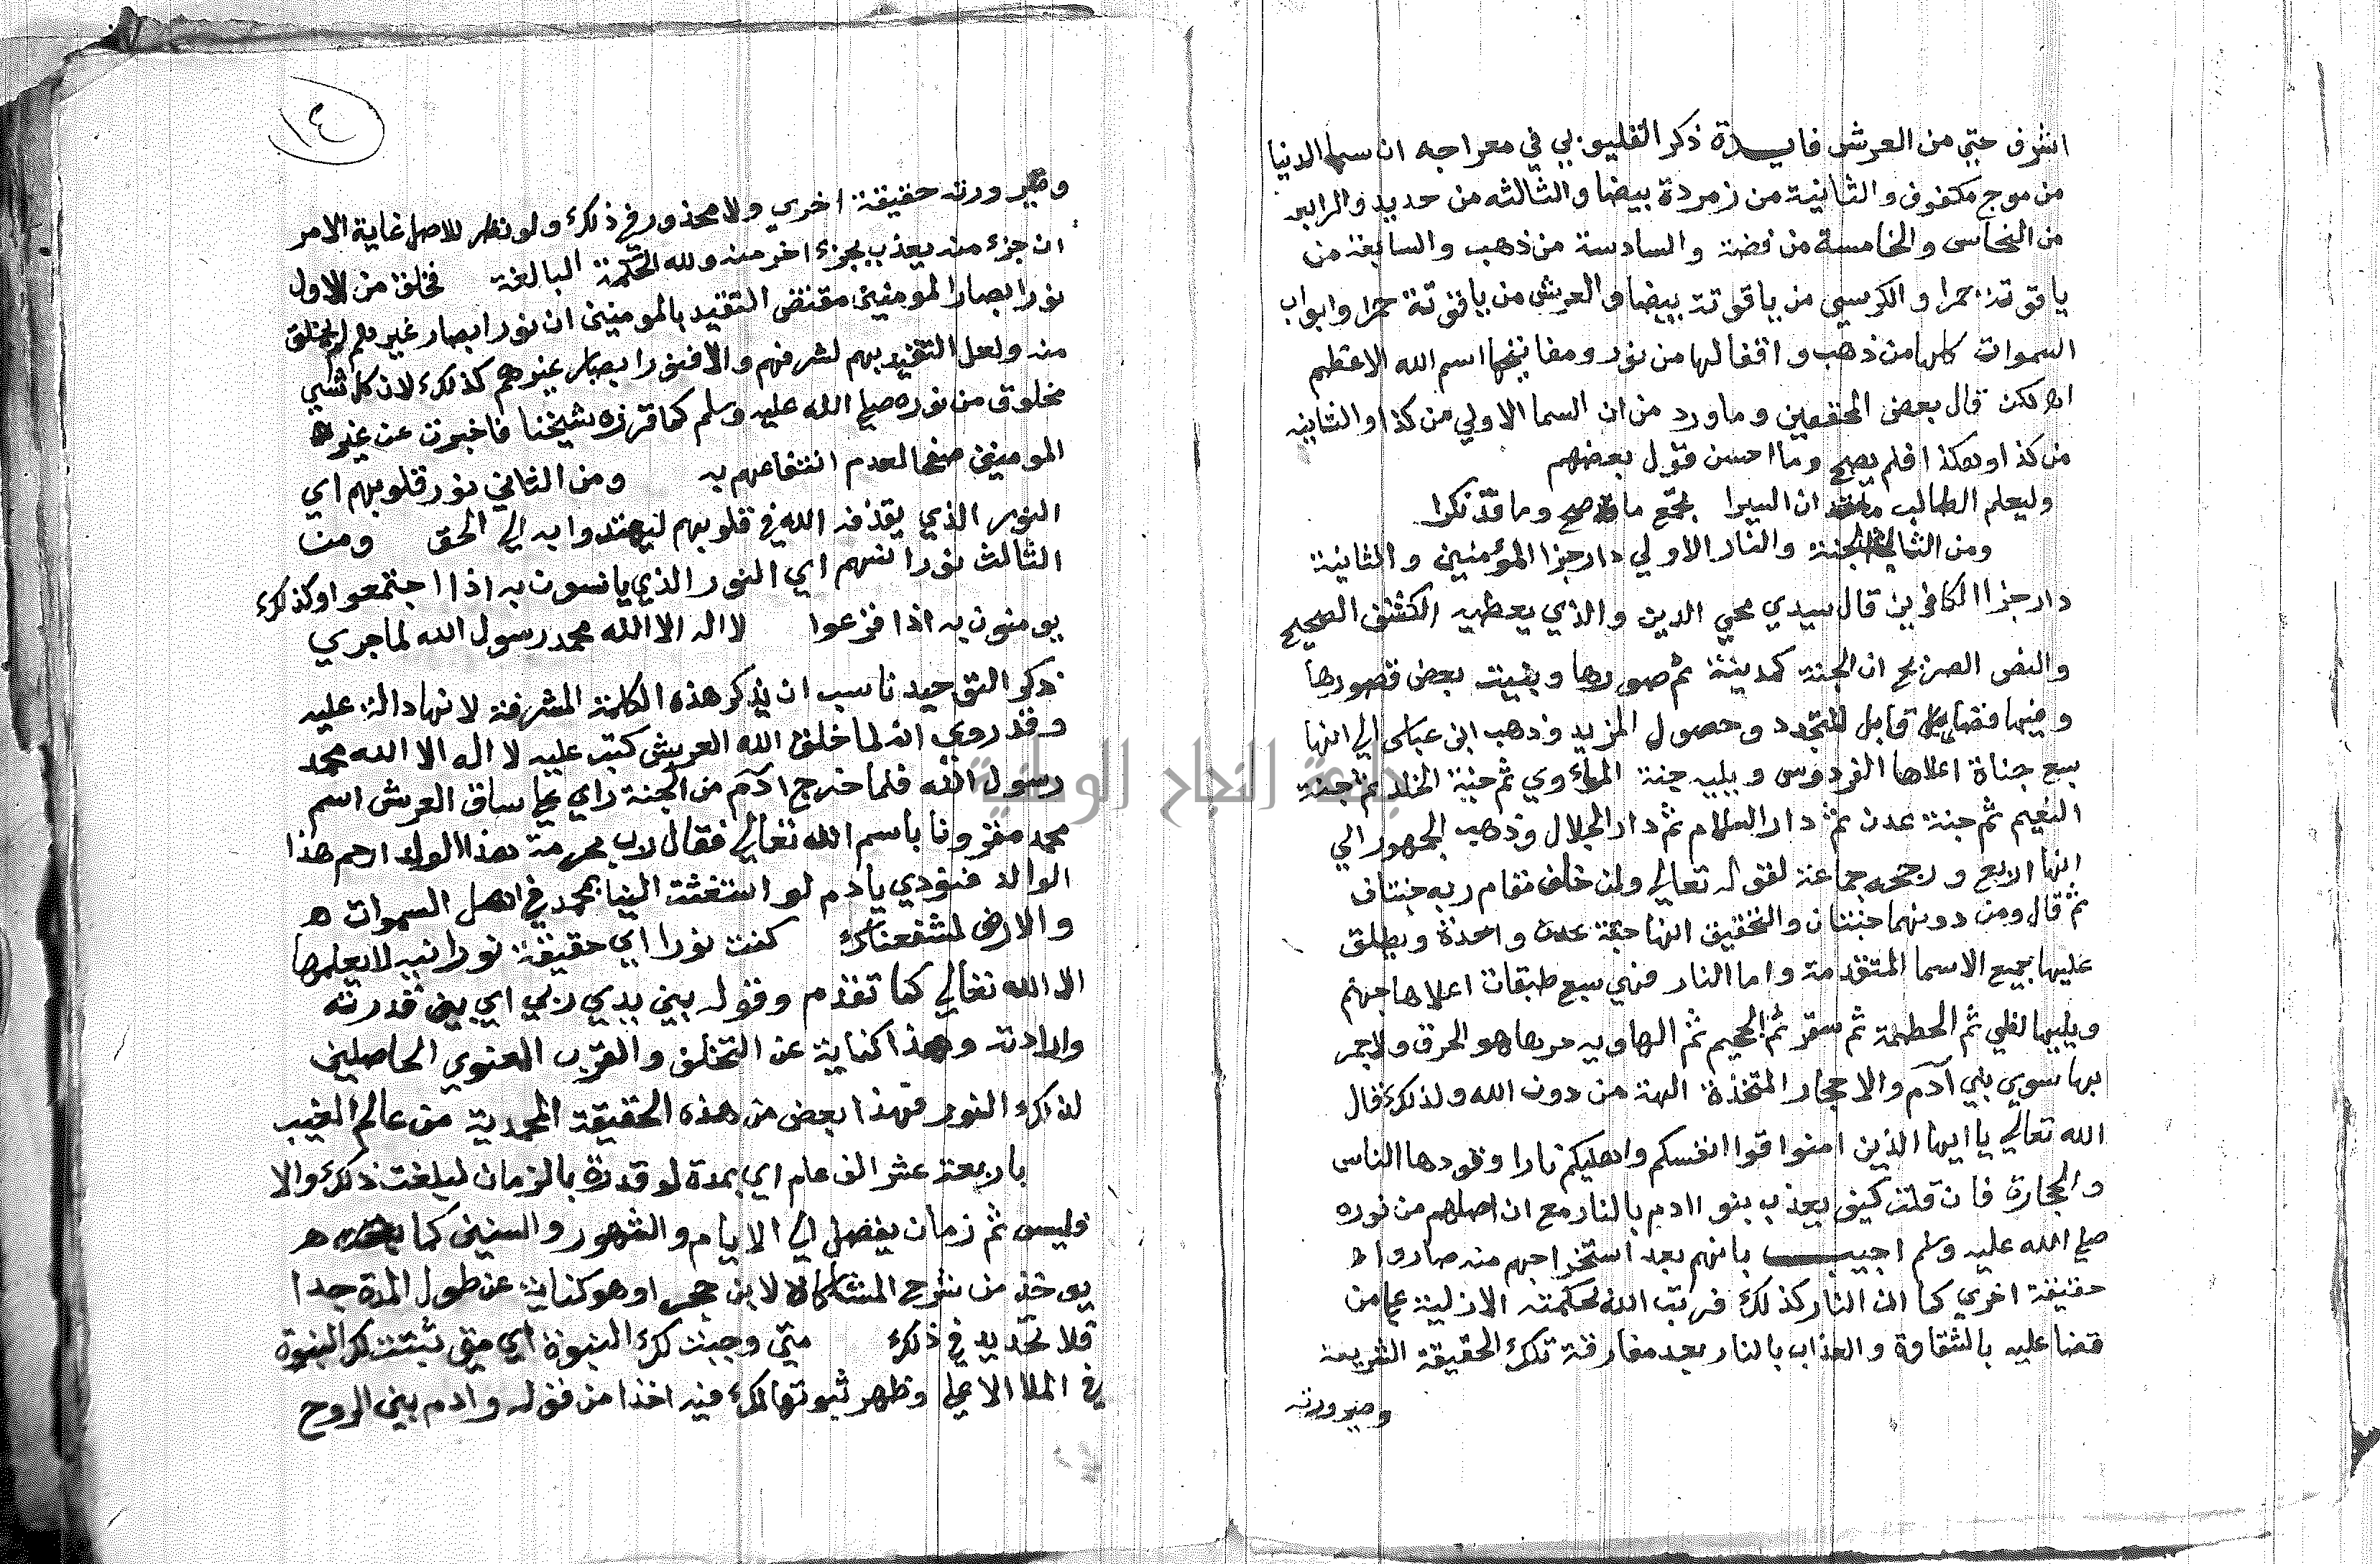 اشرف حتي من العرش فايدة ذكر القليوبي في معراجه ان سما الدنيا
من موج مكفوف والثانية من زمردة بيضا والثالثه من حديد والرابعه
من النحاس والخامسة من فضة والسادسة من ذهب والسابعة من
ياقوتة حمرا والكرسي من ياقوتة بيضا والعرش من ياقوتة حمرا وابواب
السموات كلها من ذهب واقفالها من نور ومفاتيحها اسم الله الاعظم
اه لكن قال بعض المحققين وما ورد من ان السما الاولي من كذا والثانيه
من كذا وهكذا فلم يصح وما احسن قول بعضهم
وليعلم الطالب ان السيرا تجمع ما قد صح وما قد نكرا
ومن الثالث الجنة والنار الاولي دار جزا المؤمنين والثانية
دار جزا الكافرين قال سيدي محي الدين والذي يعطيه الكشف الصحيح
والنص الصريح ان الجنة كمدينة تم صورها وبقيت بعض قصورها
وفيها فضا قابل للتجدد وحصول المزيد وذهب ابن عباس الي انها
سبع جناة اعلاها الفردوس ويليه جنة الماوي ثم جنة الخلد ثم جنة
النعيم ثم جنة عدن ثم دار السلام ثم دار الجلال وذهب الجمهور الي
انها اربع ورجحه جماعة لقوله تعالي ولمن خاف مقام ربه جنتان
ثم قال ومن دونهما جنتان والتحقيق انها جنة عدن واحدة ويطلق
عليها جميع الاسما المتقدمة واما النار فهي سبع طبقات اعلاها جهنم
ويليها لظي ثم الحطمة ثم سقر ثم الجحيم ثم الهاويه حرها هو الحرق ولا جمر
بها سوي بني آدم والاحجار المتخذة الهة من دون الله ولذلك قال
الله تعالي يا ايها الذين امنوا قوا انفسكم واهليكم نارا وقودها الناس
والحجارة فان قلت كيف يعذب بنو ادم بالنار مع ان اصلهم من نوره
صلي الله عليه وسلم اجيب بانهم بعد استخراجهم منه صاروا
حقيقة اخري كما ان النار كذلك فرتب الله بحكمته الازلية علي من
قضا عليه بالشقاوة والعذاب بالنار بعد مفارقة تلك الحقيقة الشريفة
وصيرورته
١٤
وصيرورته حقيقة اخري ولا محذور في ذلك ولو نظر للاصل غاية الامر
ان جزء منه يعذب بجزء اخر منه ولله الحكمة البالغة فخلق من الاول
نور ابصار المومنين مقتضي التقيد بالمومنين ان نور ابصار غيرهم لم يخلق
منه ولعل التقيد بهم لشرفهم والا فنور ابصار غيرهم كذلك لان كل شي
مخلوق من نوره صلي الله عليه وسلم كما قرره شيخنا فاخبرت عن غير
المومنين صفحا لعدم انتفاعهم به ومن الثاني نور قلوبهم اي
النور الذي يقذفه الله في قلوبهم ليهتدوا به الي الحق ومن
الثالث نور انسهم اي النور الذي يانسون به اذا اجتمعوا وكذلك
يومنون به اذا فزعوا لا اله الا الله محمد رسول الله لما جري
ذكر التوحيد ناسب ان يذكر هذه الكلمة المشرفة لانها دالة عليه
وقد روي انه لما خلق الله العرش كتب عليه لا اله الا الله محمد
رسول الله فلما خرج ادم من الجنة راي علي ساق العرش اسم
محمد مقرونا باسم الله تعالي فقال رب بحرمة هذا الولد ارحم هذا
الوالد فنودي يادم لو استغثت الينا بمحمد في اهل السموات
والارض لشفعناك كنت نورا اي حقيقة نورانيه لا يعلمها
الا الله تعالي كما تقدم وقوله بين يدي ربي اي بين قدرته
وارادته وهذا كناية عن التخلق والقرب المعنوي الحاصلين
لذلك النور فهذا بعض من هذه الحقيقة المحمدية من عالم الغيب
باربعة عشر الف عام اي بمدة لو قدرة بالزمان لبلغت ذلك والا
فليس ثم زمان يفصل الي الايام والشهور والسنين كما
يوخذ من شرح المشكاة لابن حجر او هو كناية عن طول المدة جدا
فلا تحديد في ذلك متي وجبت لك النبوة اي متي ثبتت لك النبوة
في الملا الاعلي وظهر ثبوتها لك فيه اخذا من قوله وادم بين الروح
جامعة النجاح الوطنية